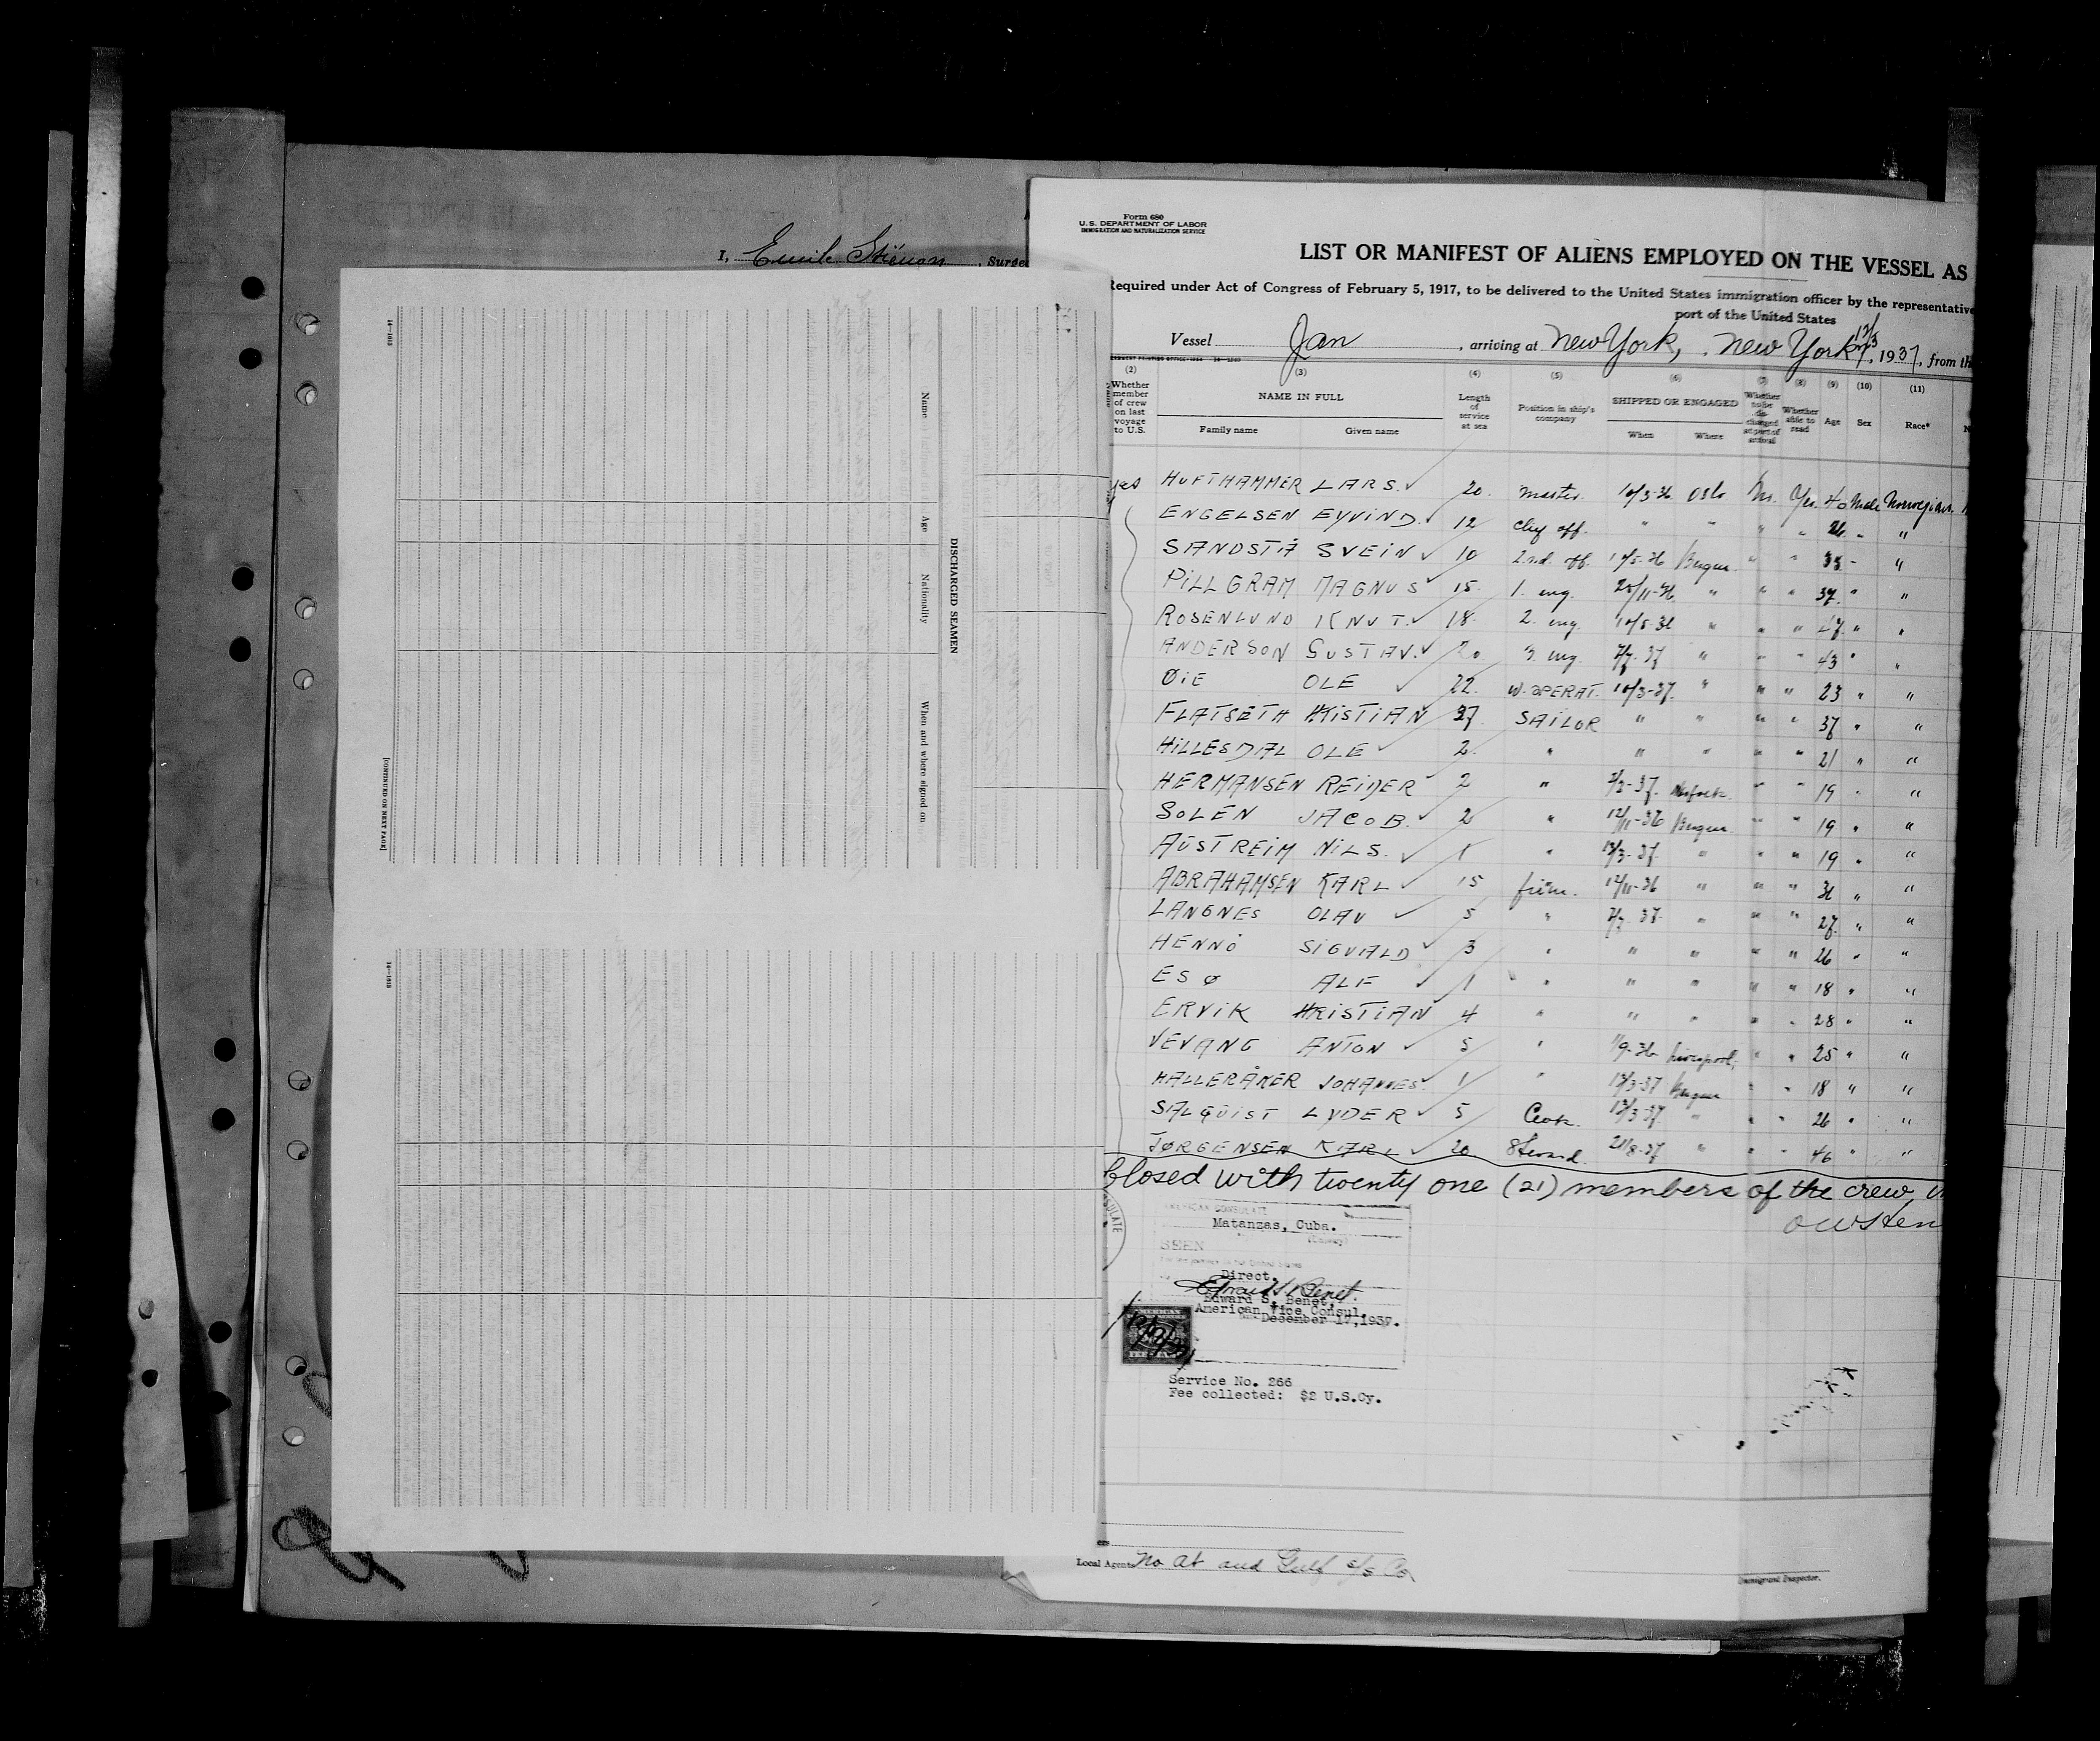 I, Emile Stienon, Surge
16—1613
Name
Age
Nationality
When and where signed on
DISCHARGED SEAMEN
[CONTINUED ON NEXT PAGE]
16—1613
Form 680
U. S. DEPARTMENT OF LABOR
IMMIGRATION AND NATURALIZATION SERVICE
LIST OR MANIFEST OF ALIENS EMPLOYED ON THE VESSEL AS
Required under Act of Congress of February 5, 1917, to be delivered to the United States immigration officer by the representative
port of the United States
Vessel Jan, arriving at New York, New York, 1937, from th
(2) (3) (4) (5) (6) (7) (8) (9) (10) (11)
Whether member of crew on last voyage to U.S. NAME IN FULL Length of service at sea Position in ship's company SHIPPED OR ENGAGED Whether to be discharged at port of arrival Whether able to read Age Sex Race* N
Family name Given name When Where
yes HUFTHAMMER LARS. 20. Master. 10/3-36 Oslo No. Yes. 40 Male Norwegian.
ENGELSEN EYVIND. 12 Chif off. " " " " 26. " "
SANDSTÅ SVEIN 10 2nd. off. 10/5-36 Bergen. " " 33 - "
PILLGRAM MAGNUS 15. 1. eng. 25/11-36 " " " 37. " "
ROSENLUND KNUT. 18. 2. eng. 10/5-36 " " " 47. " "
ANDERSON GUSTAV. 3. eng. 7/7-37 " " " 43 " "
ØIE OLE 22. W. OPERAT. 10/3-37. " " " 23 " "
FLATSETH KRISTIAN 27 SAILOR " " " " 37 " "
HILLESDAL OLE 2. " " " " " 21 " "
HERMANSEN REIDER 2 " 2/3-37. Norfolk. " " 19 " "
SOLÉN JACOB. 2 " 12/11-36 Bergen. " " 19 " "
AUSTREIM NILS. 1 " 13/3-37. " " " 19 " "
ABRAHAMSEN KARL 15 firem. 12/11-36 " " " 31 " "
LANGNES OLAV 5 " 7/7-37. " " " 27. " "
HENNØ SIGVALD 3 " " " " " 26 " "
ESØ ALF 1 " " " " " 18 " "
ERVIK KRISTIAN 4 " " " " " 28 " "
VEVANG ANTON 5 " 1/9-36 Liverpool, " " 25 " "
HALLERÅKER JOHANNES. 1 " 13/3-37 Bergen " " 18 " "
SALQUIST LYDER 5 Cook. 13/3-37 " " " 26 " "
JØRGENSEN KARL 20 Steward. 21/8-37 " " " 46 " "
Closed with twenty one (21) members of the crew,
AMERICAN CONSULATE
Matanzas, Cuba.
SEEN
Direct.
Edward S. Benet.
Edward S. Benet,
American Vice Consul.
December 17, 1937.
Service No. 266
Fee collected: $2 U.S.Cy.
Local Agents No At and Gulf S/S Co
Immigrant Inspector.